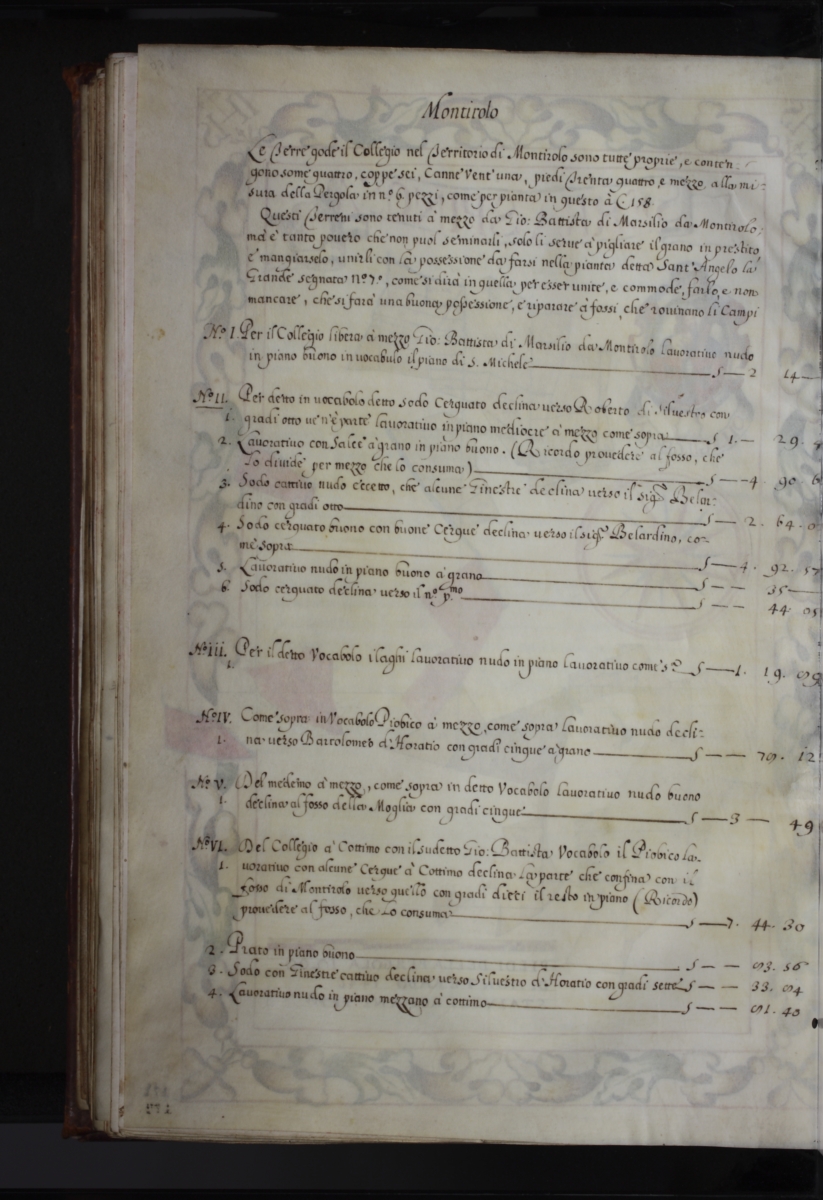 Montirolo
Le Terre gode il Collegio nel Territorio di Montirolo sono tutte proprie, e conten-
gono some quattro, coppe sei, Canne vent'una, piedi trenta quattro e mezzo alla mi-
sura della Pergola in n.º 6 pezzi, come per pianta in questo à C 158
Questi Terreni sono tenuti à mezzo da Gio: Battista di Marsilio da Montirolo,
mà è tanto povero che non puol seminarli, solo li serve à pigliare il grano in prestito
e mangiarselo, unirli con la possessione da farsi nella pianta detta Sant'Angelo la
Grande segnata N.º 7.º, come si dirà in quella per esser unite, e commode, farlo, e non
mancare, che si farà una buona possessione, e riparare à fossi, che rovinano li Campi
N.º I. Per il Collegio libera à mezzo Gio: Battista di Marsilio da Montirolo lavorativo nudo
in piano buono in vocabulo il piano di S. Michele S — 2 14 —
N.º II. Per detto in vocabolo detto Sodo Cerquato declina verso Roberto di Silvestro con
1. gradi otto ve n'è parte lavorativo in piano mediocre à mezzo come sopra S 1. — 29. 4
2. Lavorativo con Salce à grano in piano buono. (Ricordo provedere al fosso, che
lo divide per mezzo che lo consuma) S — 4. 90. 6
3. Sodo cattivo nudo eccetto, che alcune Ginestre declina verso il sig.r Belar-
dino con gradi otto S — 2. 64. 0
4. Sodo cerquato buono con buone Cerque declina verso il sig.r Belardino, co-
me sopra S — 4. 92. 57
5. Lavorativo nudo in piano buono à grano S — — 35 —
6. Sodo cerquato declina verso il n.º p.mo S — — 44 05
N.º III. Per il detto Vocabolo i laghi lavorativo nudo in piano lavorativo come s.ª S — 1. 19. 99
1.
N.º IV. Come sopra in Vocabolo Piobico à mezzo, come sopra lavorativo nudo decli-
1. na verso Bartolomeo d'Horatio con gradi cinque à grano S — — 79. 12
N.º V. Del medemo à mezzo, come sopra in detto Vocabolo lavorativo nudo buono
1. declina al fosso della Moglia con gradi cinque S — 3 — 49
N.º VI. Del Collegio à Cottimo con il sudetto Gio: Battista Vocabolo il Piobico la-
1. vorativo con alcune Cerque à Cottimo declina la parte che confina con il
fosso di Montirolo verso quello con gradi dieci il resto in piano (Ricordo)
provedere al fosso, che lo consuma S — 7. 44. 30
2. Prato in piano buono S — — 93. 56
3. Sodo con Ginestre cattivo declina verso Silvestro d'Horatio con gradi sette S — — 33. 94
4. Lavorativo nudo in piano mezzano à cottimo S — — 91. 40